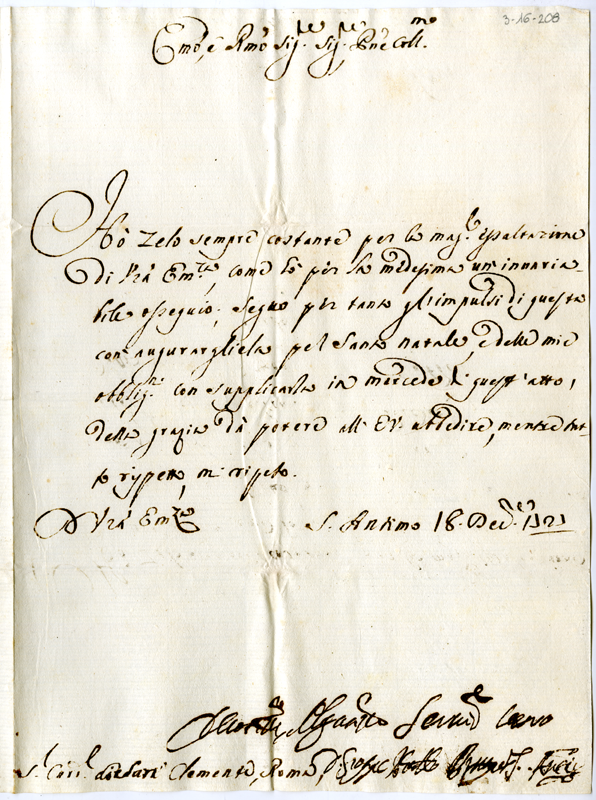 3-16-208
Emo, e Rmo Sigre Sigre Pne Collmo
Hò zelo sempre costante per la magre esaltazione
di Vra Emza, come hò per la medesima un' invaria-
bile ossequio; seguo per tanto gl'impulsi di questa
con augurargliela pel Santo natale, e delle mie
obblign con supplicarla in mercede di quest' atto,
della grazia dà potere all' EV. ubbidire, mentre tut-
to rispetto, mi ripeto.
D Vra Emza
S. Antimo 18. Decre
Devotmo Servre
S. Carl Clemente, Roma